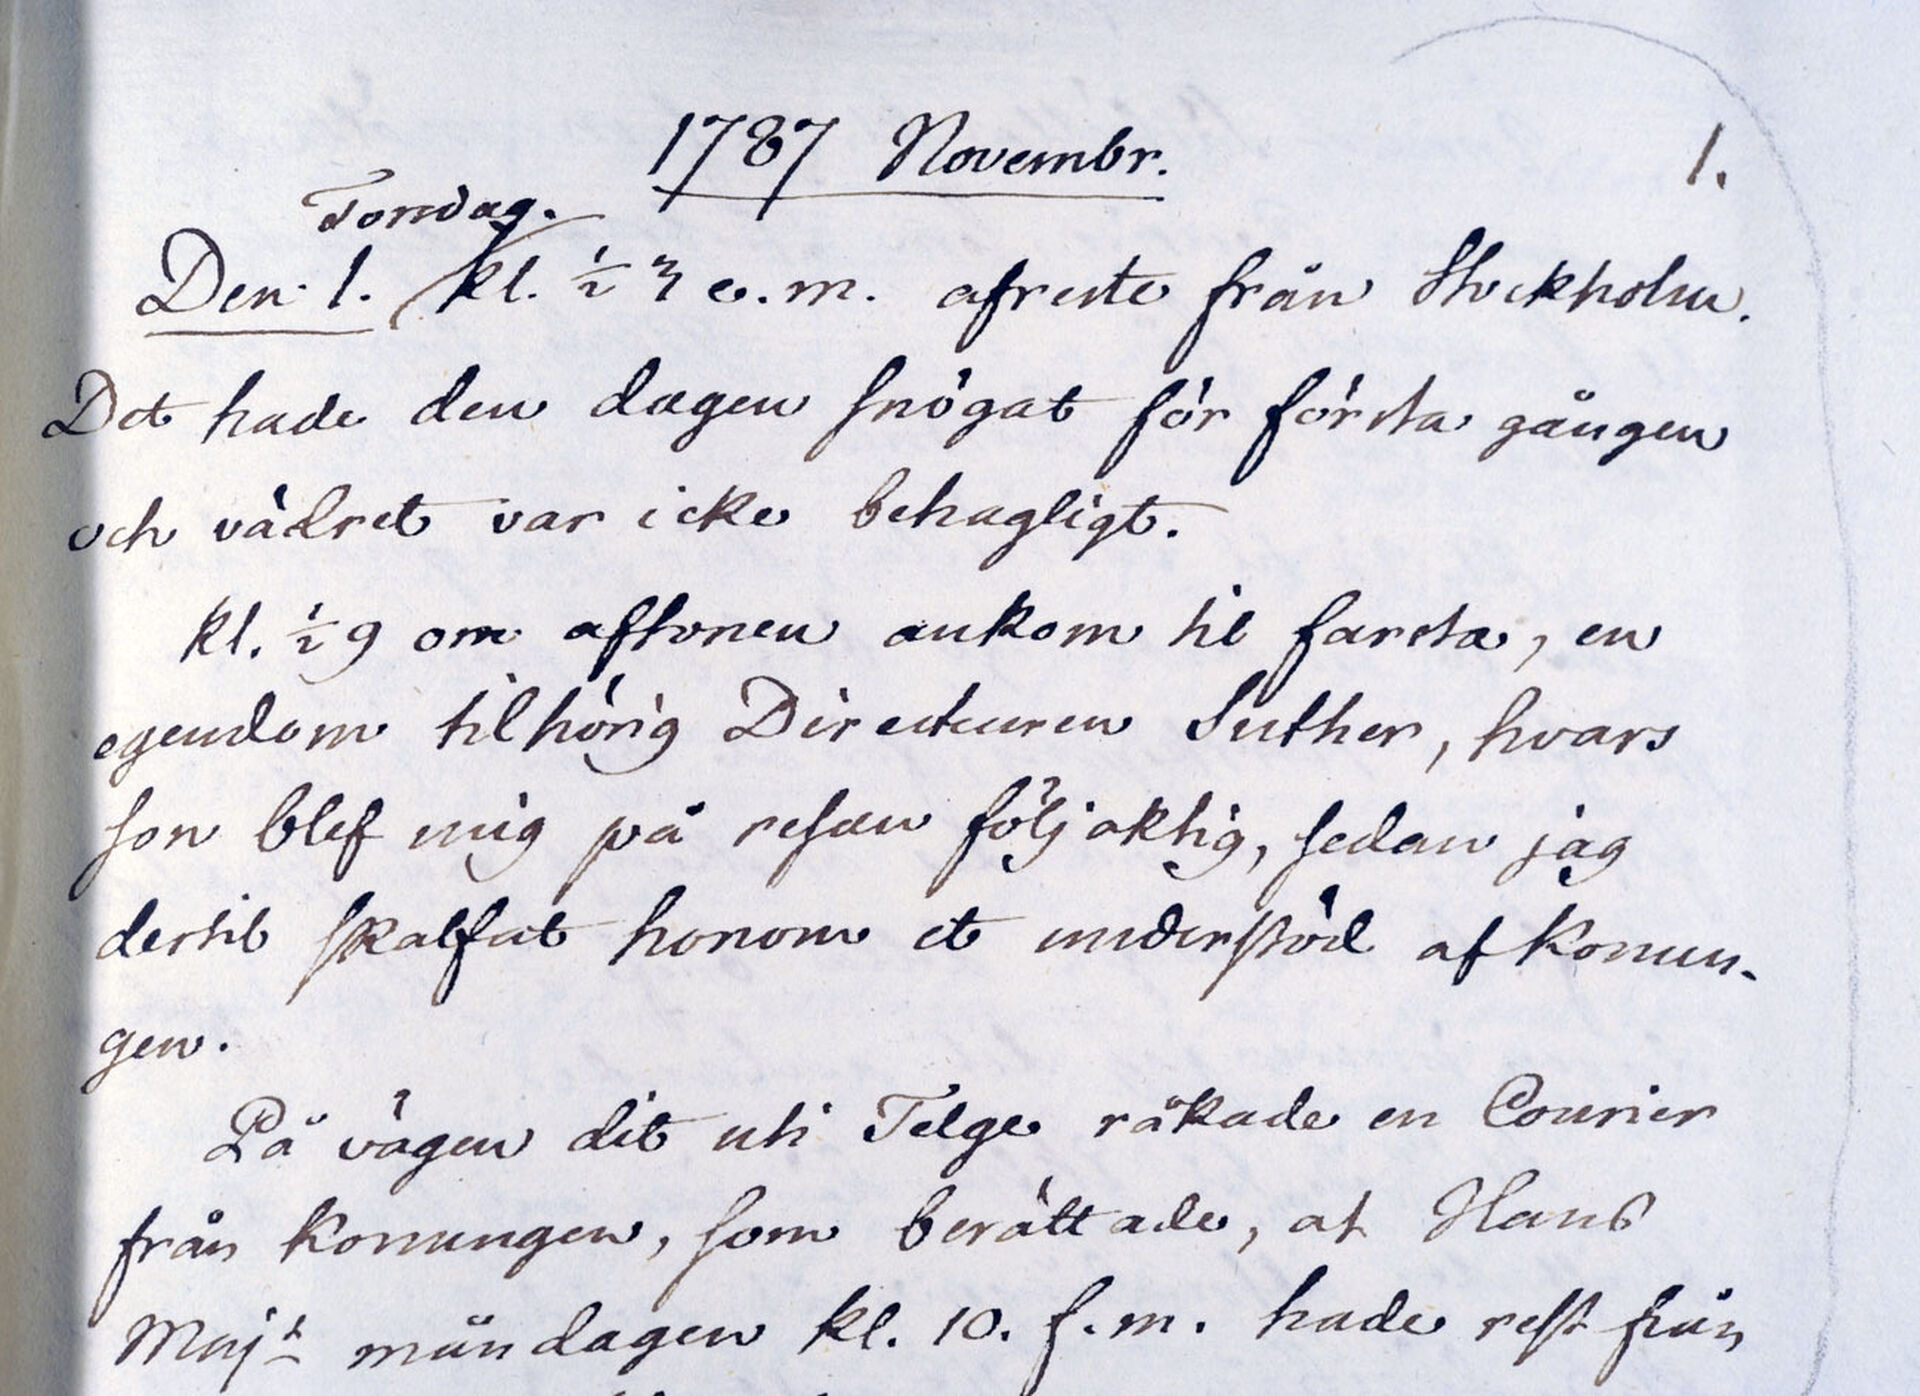 1787 Novembr.
1.
Torsdag.
Den 1. kl. ½ 3 e.m. afreste från Stockholm.
Det hade den dagen snögat för första gången
och vädret var icke behagligt.
kl. ½ 9 om aftonen ankom til farsta, en
egendom tilhörig Directeuren Suther, hvars
son blef mig på resan följaktig, sedan jag
dertil skaffat honom et understöd af Konun-
gen.
På vägen dit uti Telge råkade en Courier
från Konungen, som berättade, at Hans
Majt måndagen kl. 10. f.m. hade rest från